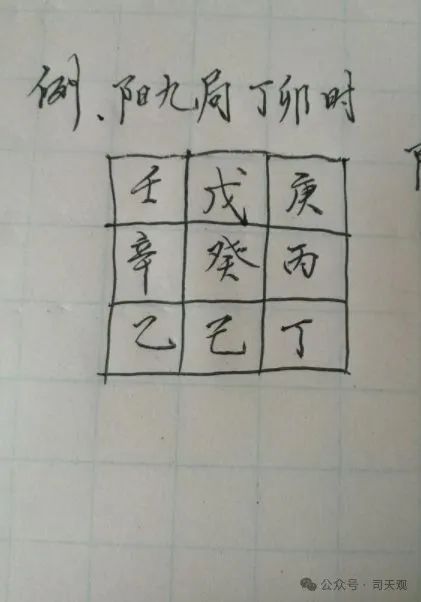 例、阳九局丁卯时
壬 戊 庚
辛 癸 丙
乙 己 丁
公众号·司天观